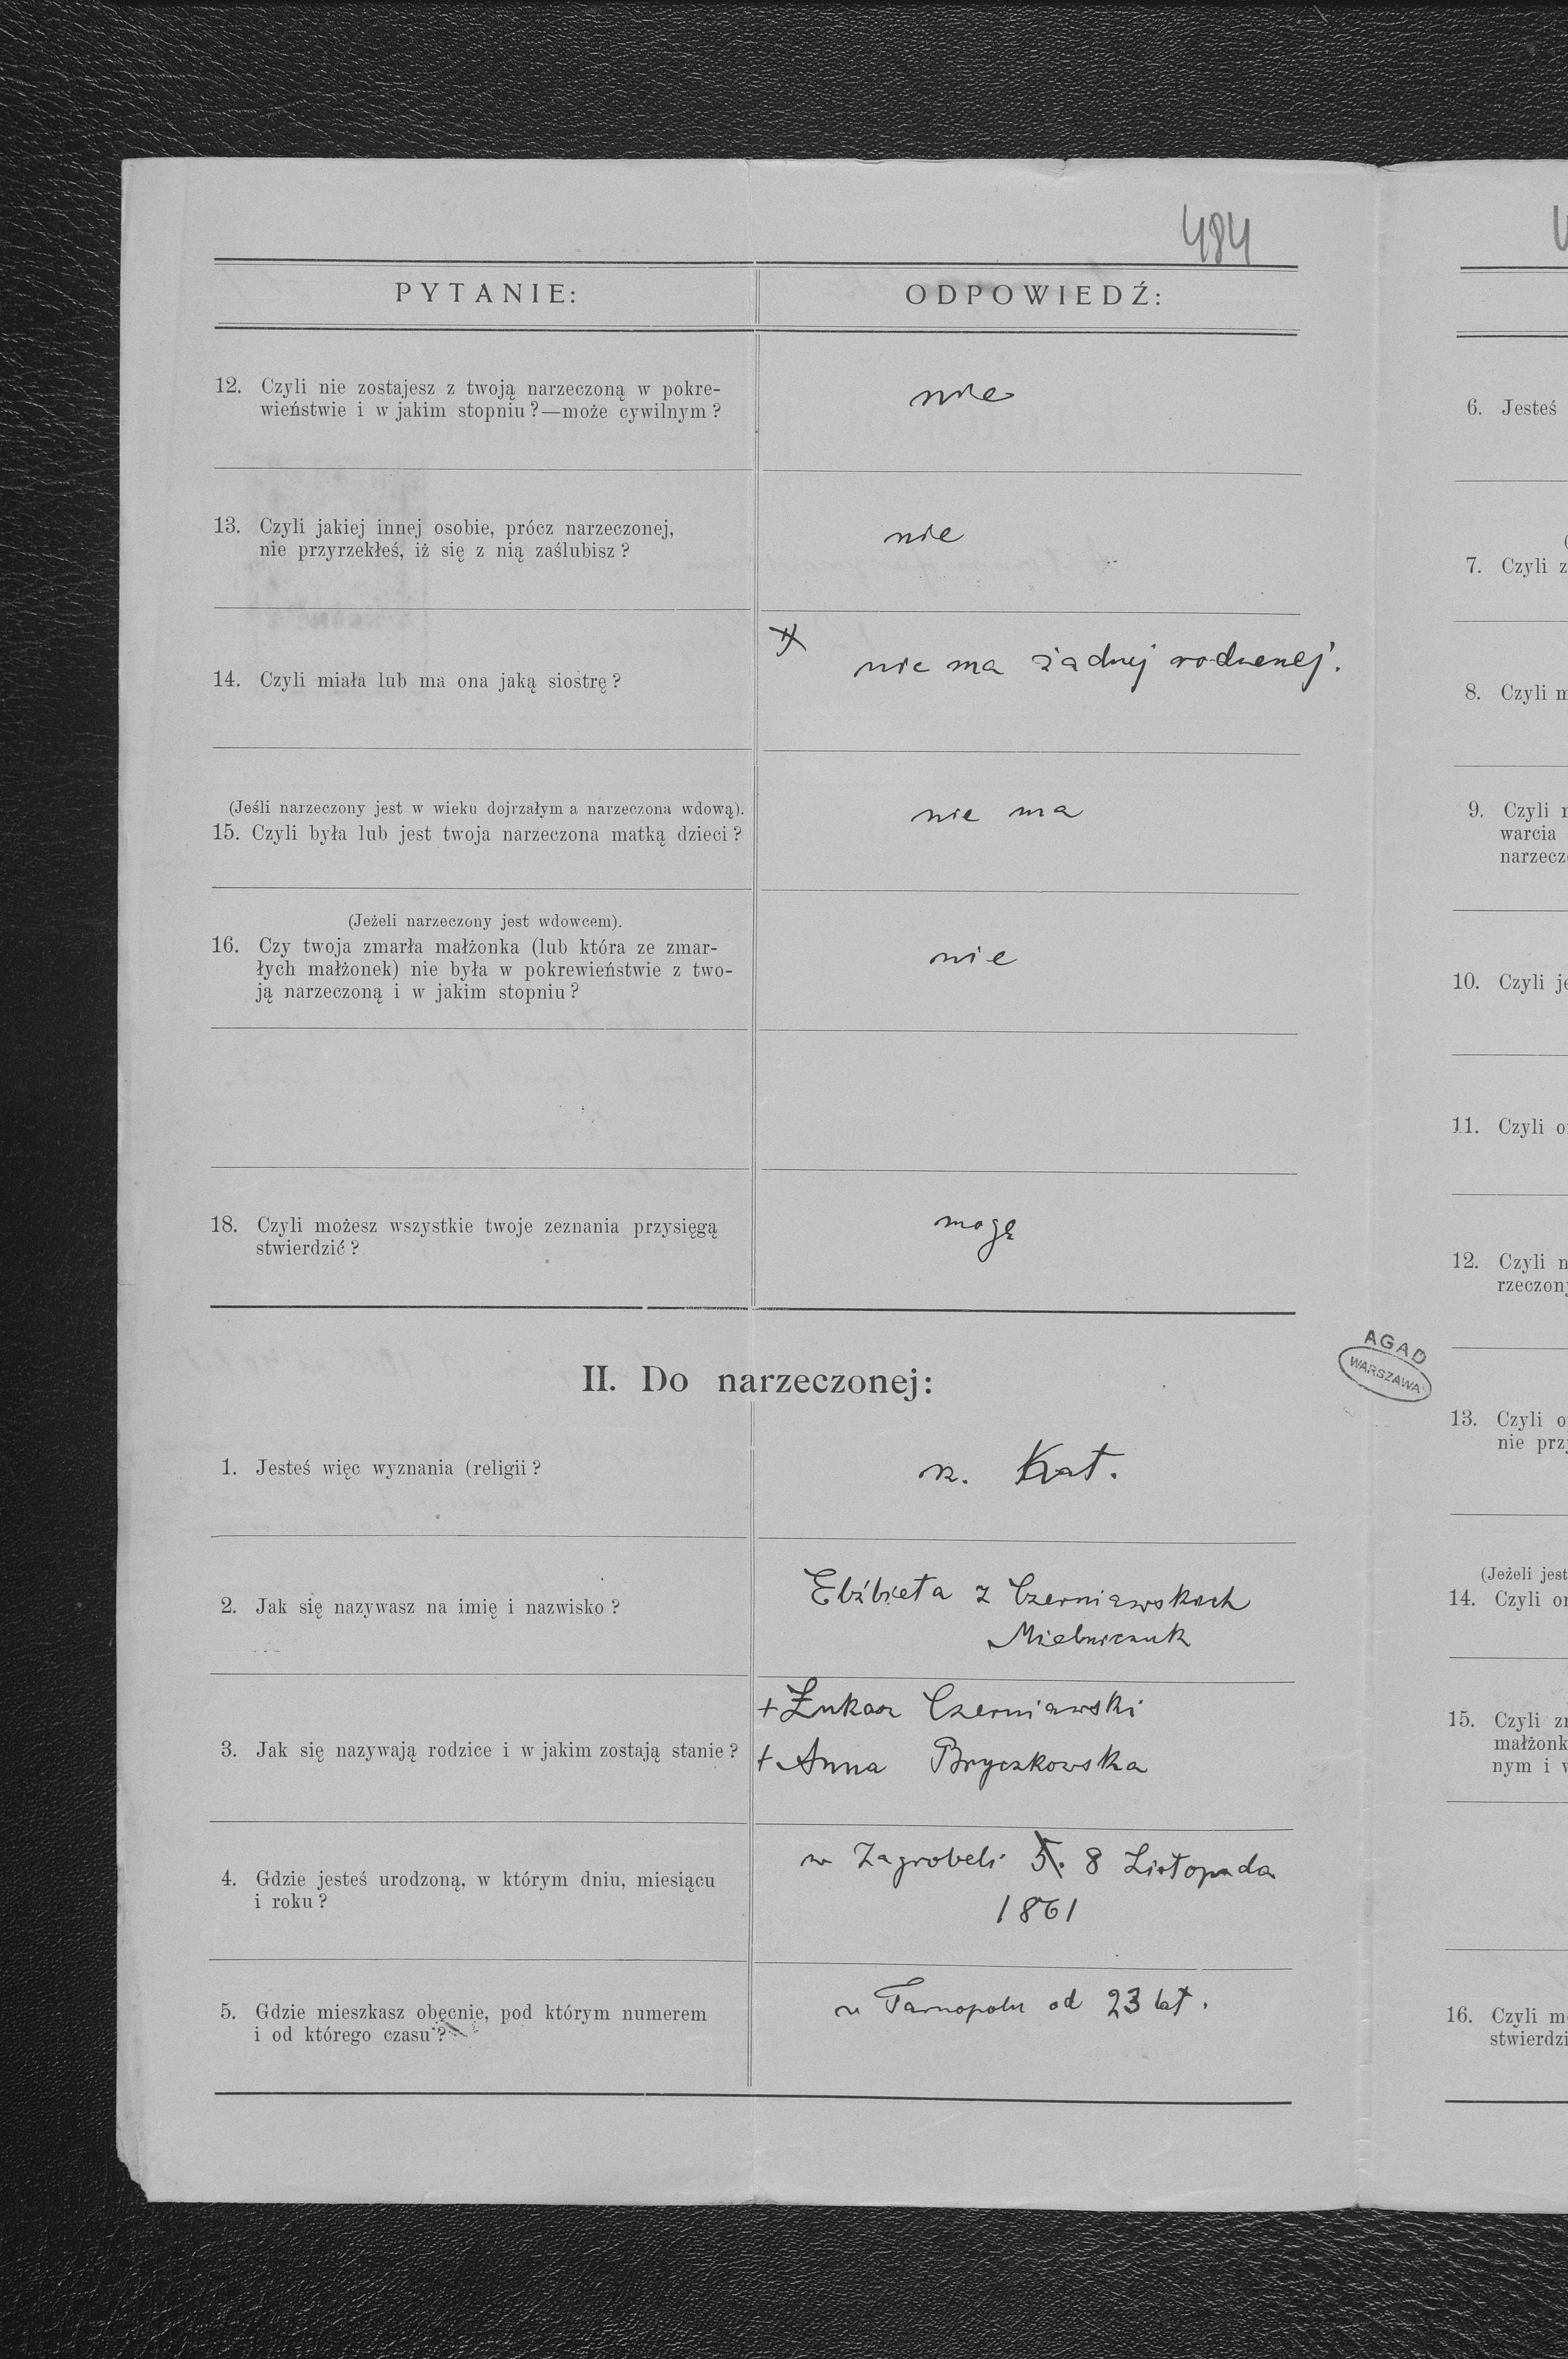 484
PYTANIE:
ODPOWIEDŹ:
12. Czyli nie zostajesz z twoją narzeczoną w pokre-
wieństwie i w jakim stopniu?—może cywilnym?
nie
13. Czyli jakiej innej osobie, prócz narzeczonej,
nie przyrzekłeś, iż się z nią zaślubisz?
nie
14. Czyli miała lub ma ona jaką siostrę?
nie ma żadnej rodzenej.
(Jeśli narzeczony jest w wieku dojrzałym a narzeczona wdową).
15. Czyli była lub jest twoja narzeczona matką dzieci?
nie ma
(Jeżeli narzeczony jest wdowcem).
16. Czy twoja zmarła małżonka (lub która ze zmar-
łych małżonek) nie była w pokrewieństwie z two-
ją narzeczoną i w jakim stopniu?
nie
18. Czyli możesz wszystkie twoje zeznania przysięgą
stwierdzić?
mogę
II. Do narzeczonej:
1. Jesteś więc wyznania (religii?
r. Kat.
2. Jak się nazywasz na imię i nazwisko?
Elżbieta z Czerniawskich
Mielniczuk
3. Jak się nazywają rodzice i w jakim zostają stanie?
+ Łukasz Czerniawski
+ Anna Bryczkowska
4. Gdzie jesteś urodzoną, w którym dniu, miesiącu
i roku?
w Zagrobeli 5. 8 Listopada
1861
5. Gdzie mieszkasz obecnie, pod którym numerem
i od którego czasu?
w Tarnopolu od 23 lat.
AGAD
WARSZAWA
6. Jesteś
7. Czyli z
8. Czyli m
9. Czyli
warcia
narzecz
10. Czyli je
11. Czyli o
12. Czyli n
rzeczon
13. Czyli o
nie prz
(Jeżeli jest
14. Czyli o
15. Czyli z
małżonk
nym i
16. Czyli m
stwierdzi